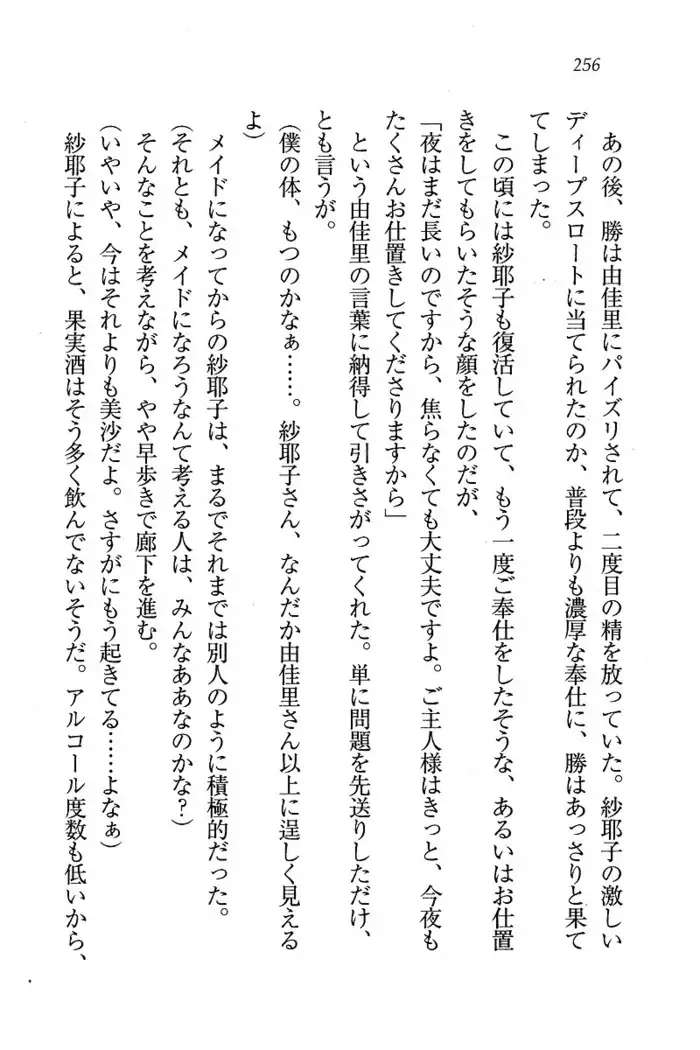 256
あの後、勝は由佳里にパイズリされて、二度目の精を放っていた。紗耶子の激しい
ディープスロートに当てられたのか、普段よりも濃厚な奉仕に、勝はあっさりと果て
てしまった。
この頃には紗耶子も復活していて、もう一度ご奉仕をしたそうな、あるいはお仕置
きをしてもらいたそうな顔をしたのだが、
「夜はまだ長いのですから、焦らなくても大丈夫ですよ。ご主人様はきっと、今夜も
たくさんお仕置きしてくださりますから」
という由佳里の言葉に納得して引きさがってくれた。単に問題を先送りしただけ、
とも言うが。
(僕の体、もつのかなぁ……。紗耶子さん、なんだか由佳里さん以上に逞しく見える
よ)
メイドになってからの紗耶子は、まるでそれまでは別人のように積極的だった。
(それとも、メイドになろうなんて考える人は、みんなああなのかな?)
そんなことを考えながら、やや早歩きで廊下を進む。
(いやいや、今はそれよりも美沙だよ。さすがにもう起きてる……よなぁ)
紗耶子によると、果実酒はそう多く飲んでないそうだ。アルコール度数も低いから、